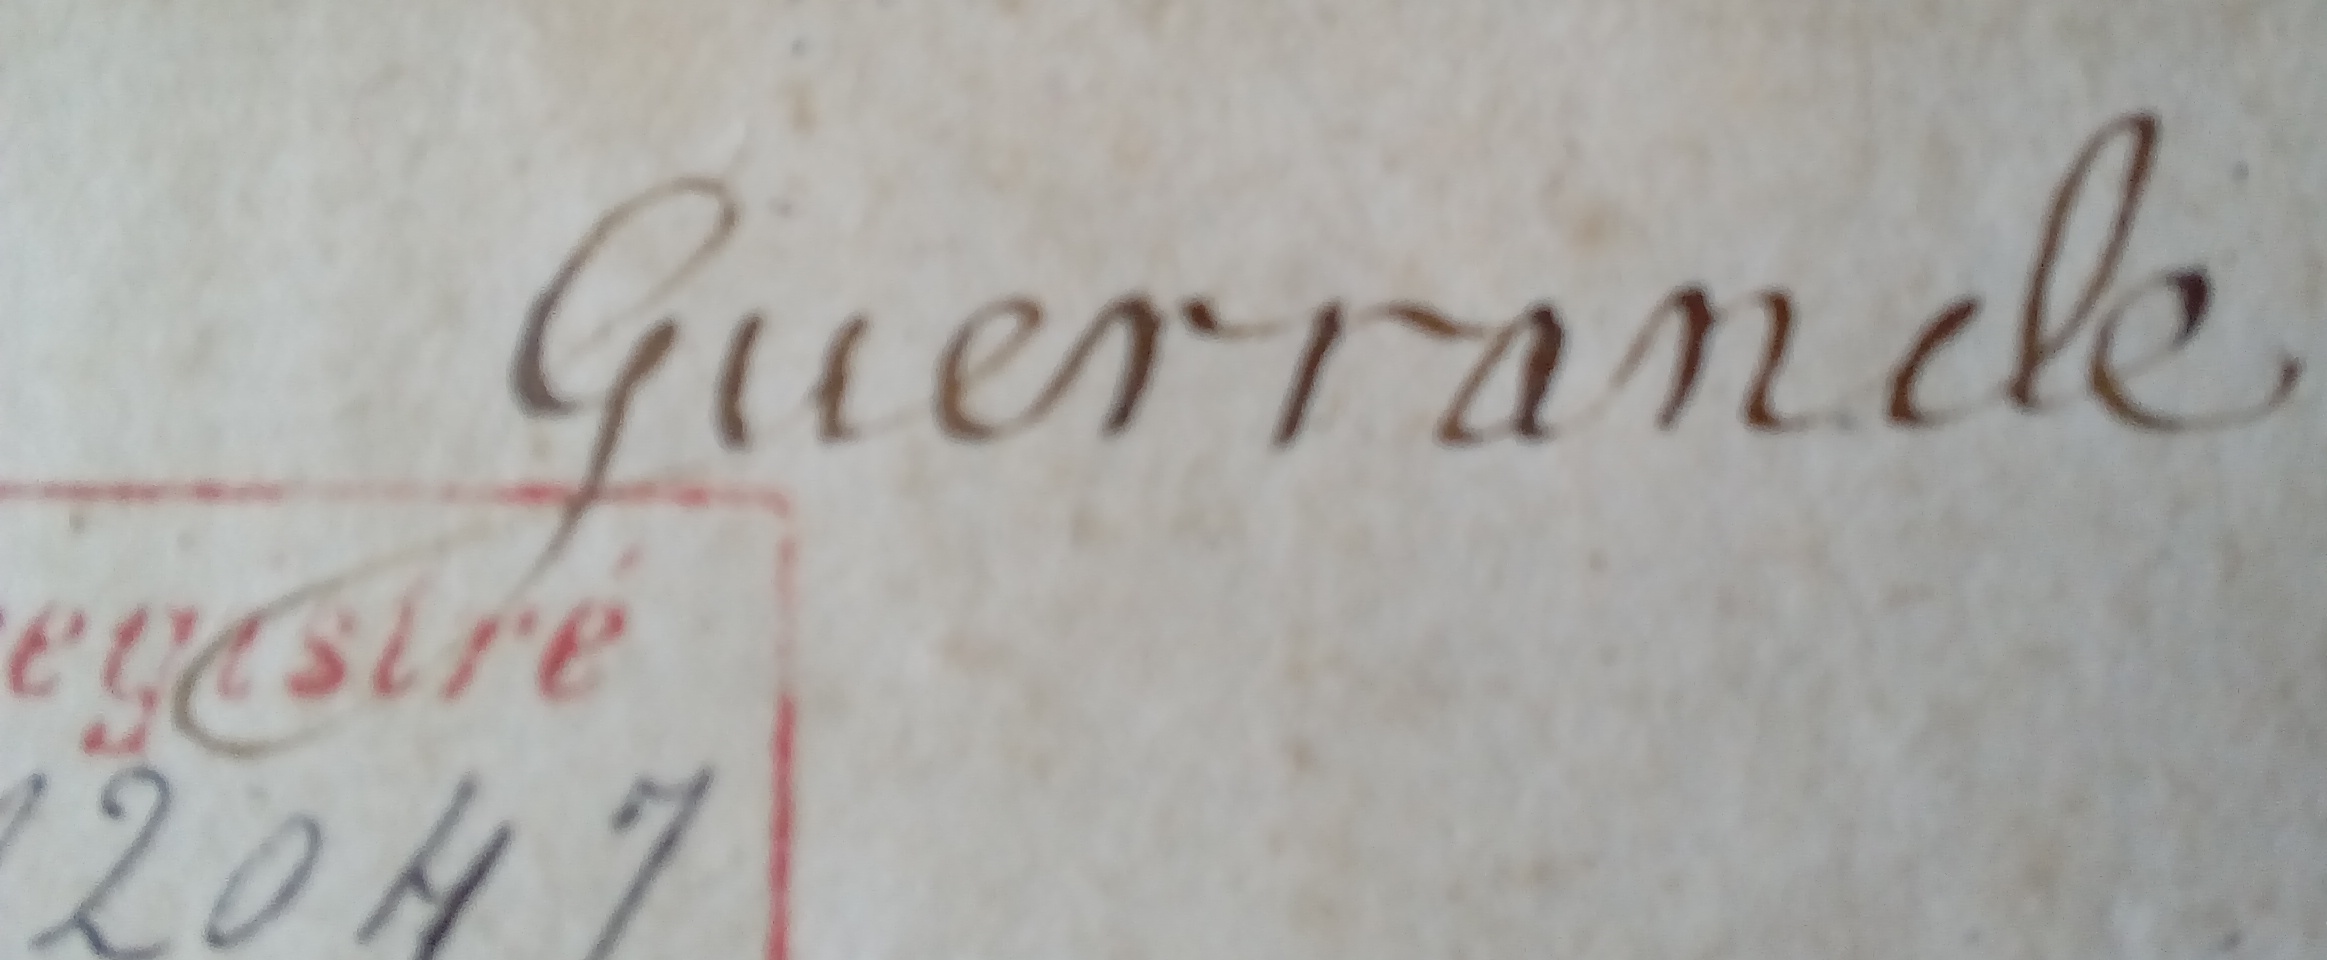 Guerrande
egistré
12047